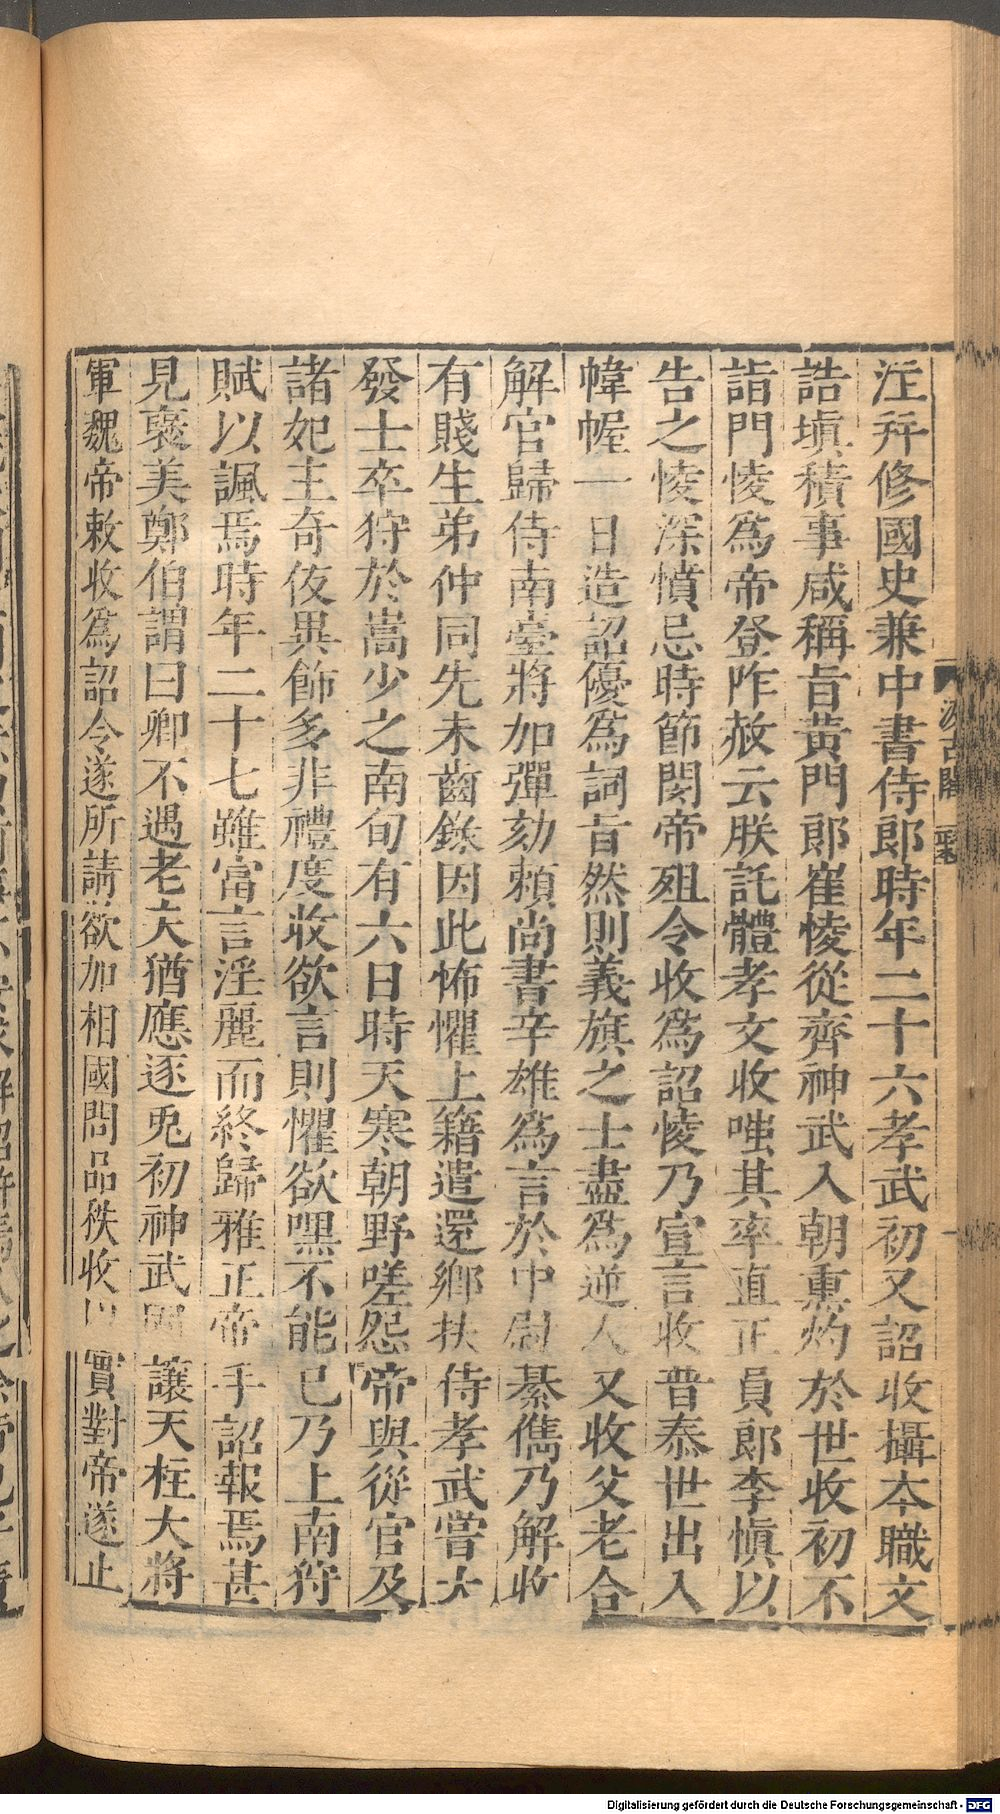 注幷修國史兼中書侍郎時年二十六孝武初又詔收攝本職文
誥塡積事咸稱旨黃門郎崔㥄從齊神武入朝熏灼於世收初不
詣門㥄爲帝登阼赦云朕託體孝文收嗤其率直正員郎李愼以
告之㥄深憤忌時節閔帝殂令收爲詔㥄乃宣言收普泰世出入
幃幄一日造詔優爲詞旨然則義旗之士盡爲逆人又收父老合
解官歸侍南臺將加彈劾賴尚書辛雄爲言於中尉綦儁乃解收
有賤生弟仲同先未齒錄因此怖懼上籍遣還鄉扶侍孝武嘗大
發士卒狩於嵩少之南旬有六日時天寒朝野嗟怨帝與從官及
諸妃主奇伎異飾多非禮度收欲言則懼欲嘿不能已乃上南狩
賦以諷焉時年二十七雖富言淫麗而終歸雅正帝手詔報焉甚
見褒美鄭伯謂曰卿不遇老夫猶應逐兎初神武固讓天柱大將
軍魏帝敕收爲詔令遂所請欲加相國問品秩收以實對帝遂止
汲古閣
Digitalisierung gefördert durch die Deutsche Forschungsgemeinschaft - DFG